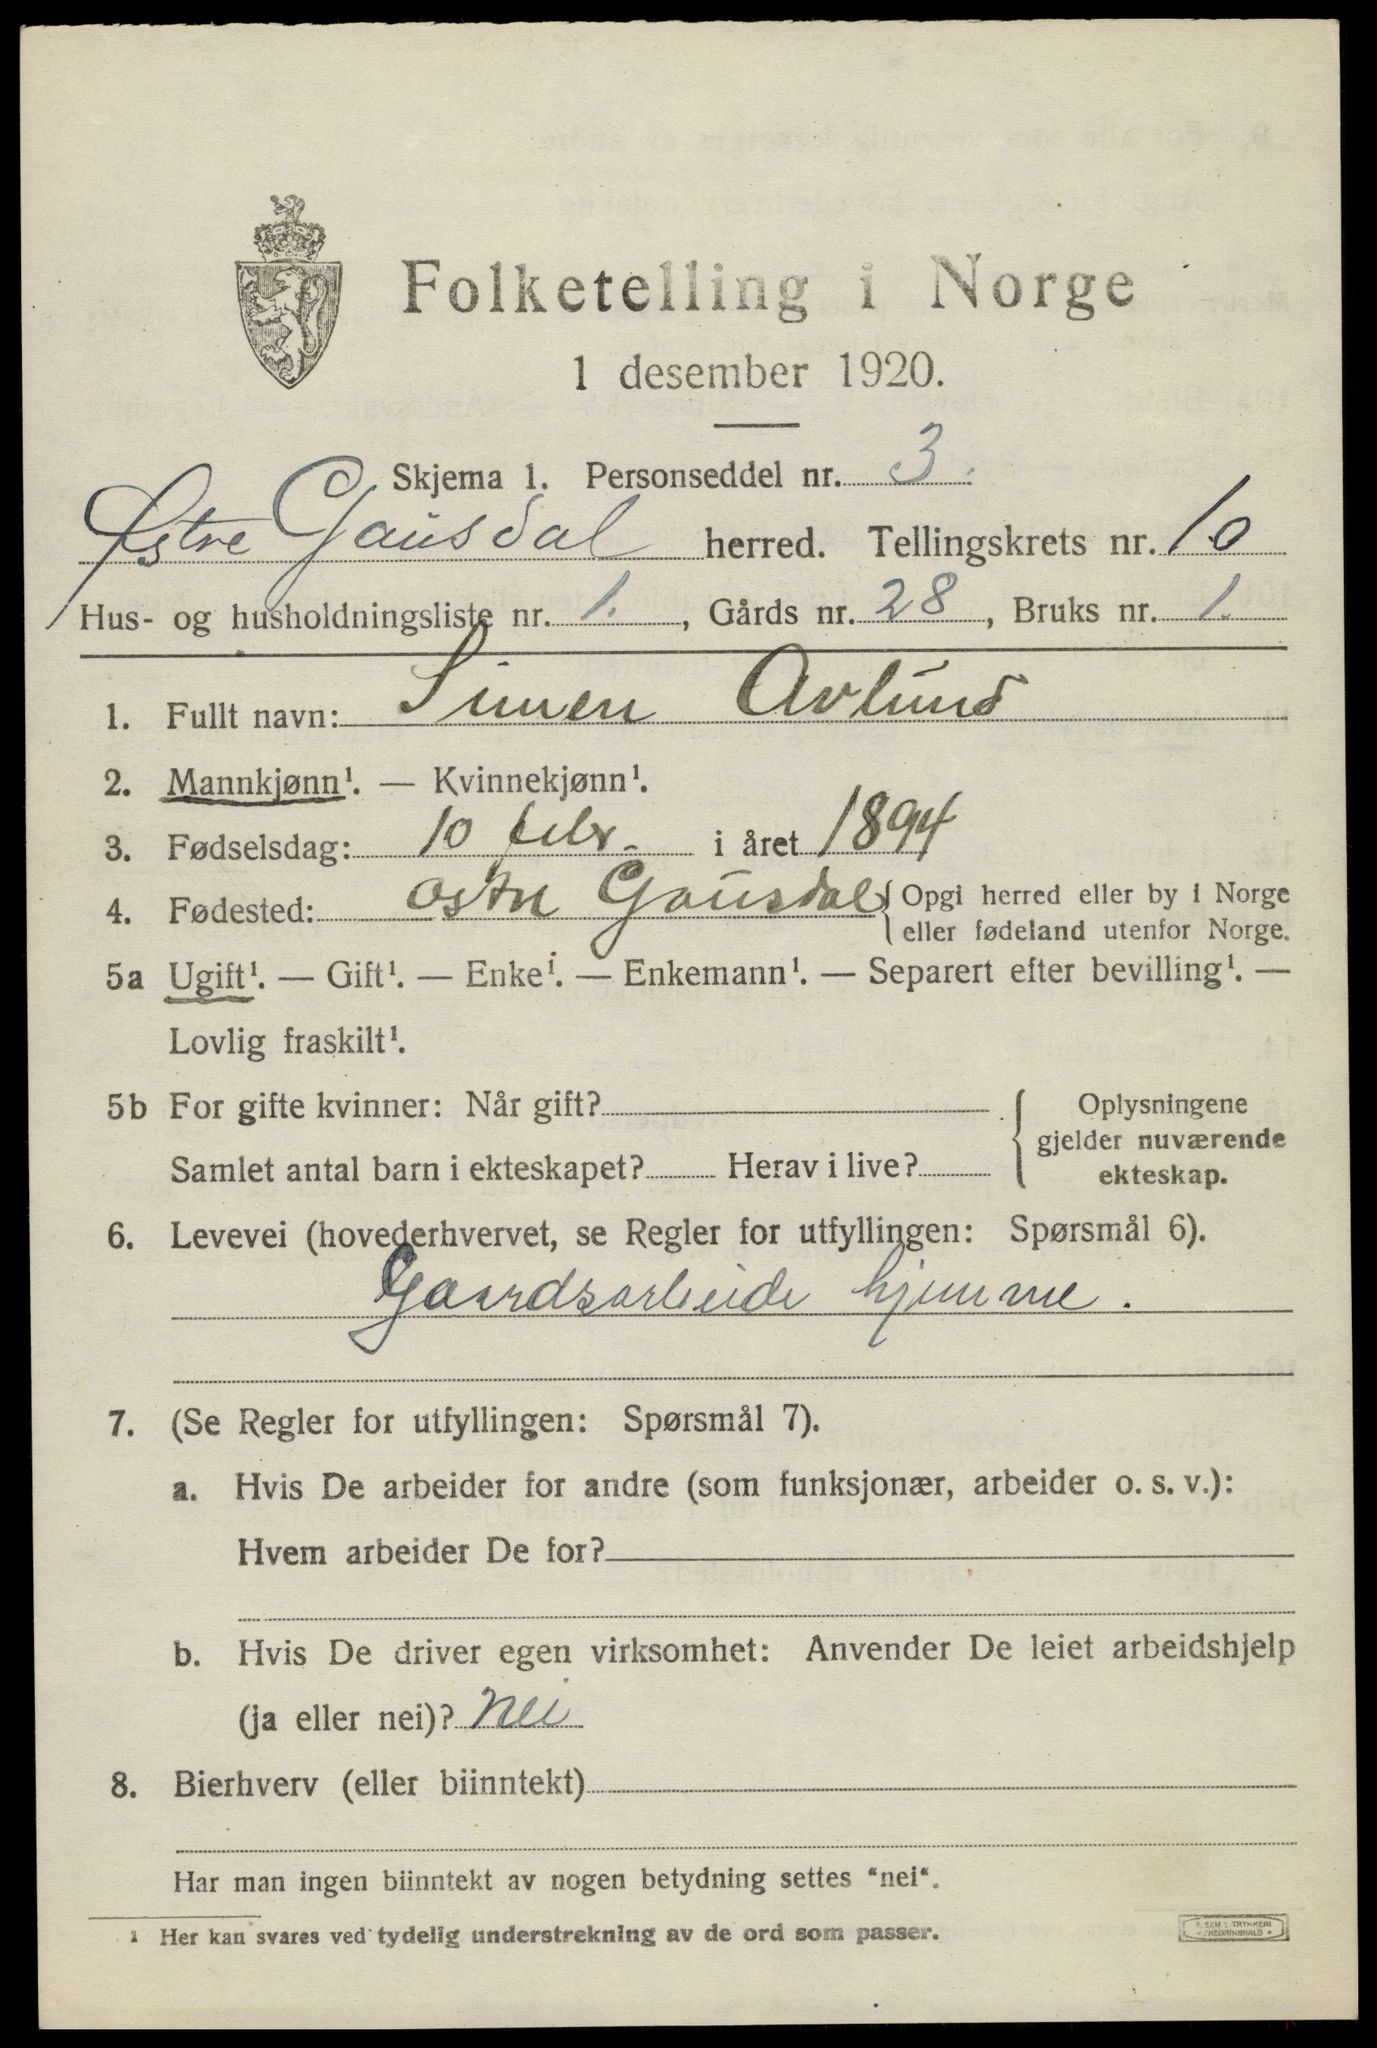 Folketelling i Norge
1 desember 1920.
Skjema 1. Personseddel nr. 3.
Østre Gausdal herred. Tellingskrets nr. 10
Hus- og husholdningsliste nr. 1., Gårds nr. 28, Bruks nr. 1.
1. Fullt navn: Simen Avlund
2. Mannkjønn¹. — Kvinnekjønn¹.
3. Fødselsdag: 10 febr. i året 1894
4. Fødested: østre Gausdal { Opgi herred eller by i Norge
eller fødeland utenfor Norge.
5a Ugift¹. — Gift¹. — Enke¹. — Enkemann¹. — Separert efter bevilling¹. —
Lovlig fraskilt¹.
5b For gifte kvinner: Når gift? { Oplysningene
gjelder nuværende
Samlet antal barn i ekteskapet? Herav i live? ekteskap.
6. Levevei (hovederhvervet, se Regler for utfyllingen: Spørsmål 6).
Gaardsarbeide hjemme.
7. (Se Regler for utfyllingen: Spørsmål 7).
a. Hvis De arbeider for andre (som funksjonær, arbeider o. s. v.):
Hvem arbeider De for?
b. Hvis De driver egen virksomhet: Anvender De leiet arbeidshjelp
(ja eller nei)? nei
8. Bierhverv (eller biinntekt)
Har man ingen biinntekt av nogen betydning settes "nei".
1 Her kan svares ved tydelig understrekning av de ord som passer.